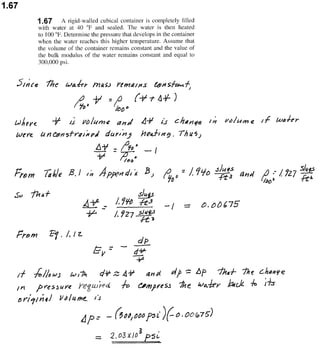 1.67
1.67 A rigid-walled cubical container is completely filled
with water at 40 °F and sealed. The water is then heated
to 100 °F. Determine the pressure that develops in the container
when the water reaches this higher temperature. Assume that
the volume of the container remains constant and the value of
the bulk modulus of the water remains constant and equal to
300,000 psi.
Since the water mass remains constant,
ρ40° V = ρ100° (V + ΔV)
where V is volume and ΔV is change in volume if water
were unconstrained during heating. Thus,
ΔV/V = ρ40°/ρ100° - 1
From Table B.1 in Appendix B, ρ40° = 1.940 slugs/ft3 and ρ100° = 1.927 slugs/ft3
so that
ΔV/V = 1.940 slugs/ft3 / 1.927 slugs/ft3 - 1 = 0.00675
From Eq. 1.12
Ev = - dp / (dV/V)
it follows with dV ≈ ΔV and dp ≈ Δp that the change
in pressure required to compress the water back to its
original volume is
Δp = - (300,000 psi)(-0.00675)
= 2.03 x 10³ psi